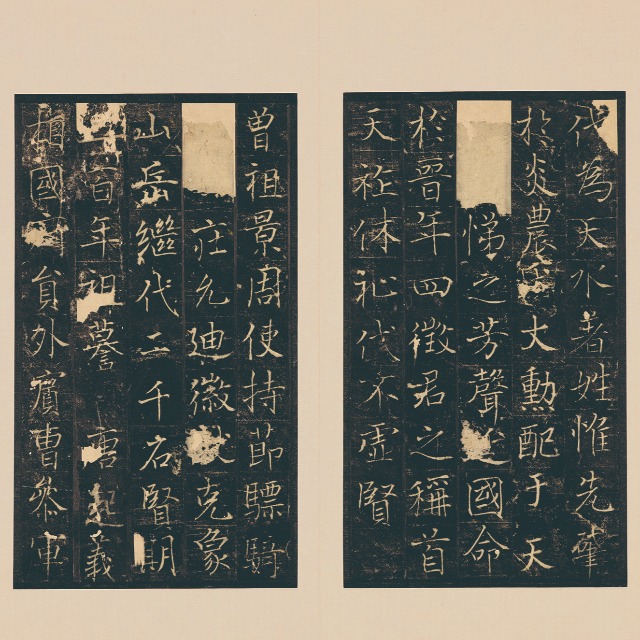 代為天水著姓惟先肇
於炎農 大勳配于天
悌之芳聲 國命
於晉年四徵君之稱首
天祚休祉代不虛賢
曾祖景周使持節驃騎
莊允迪徽 克象
山岳繼代二千石賢明
百年祖謩 唐起義
相國 員外賓曹參軍